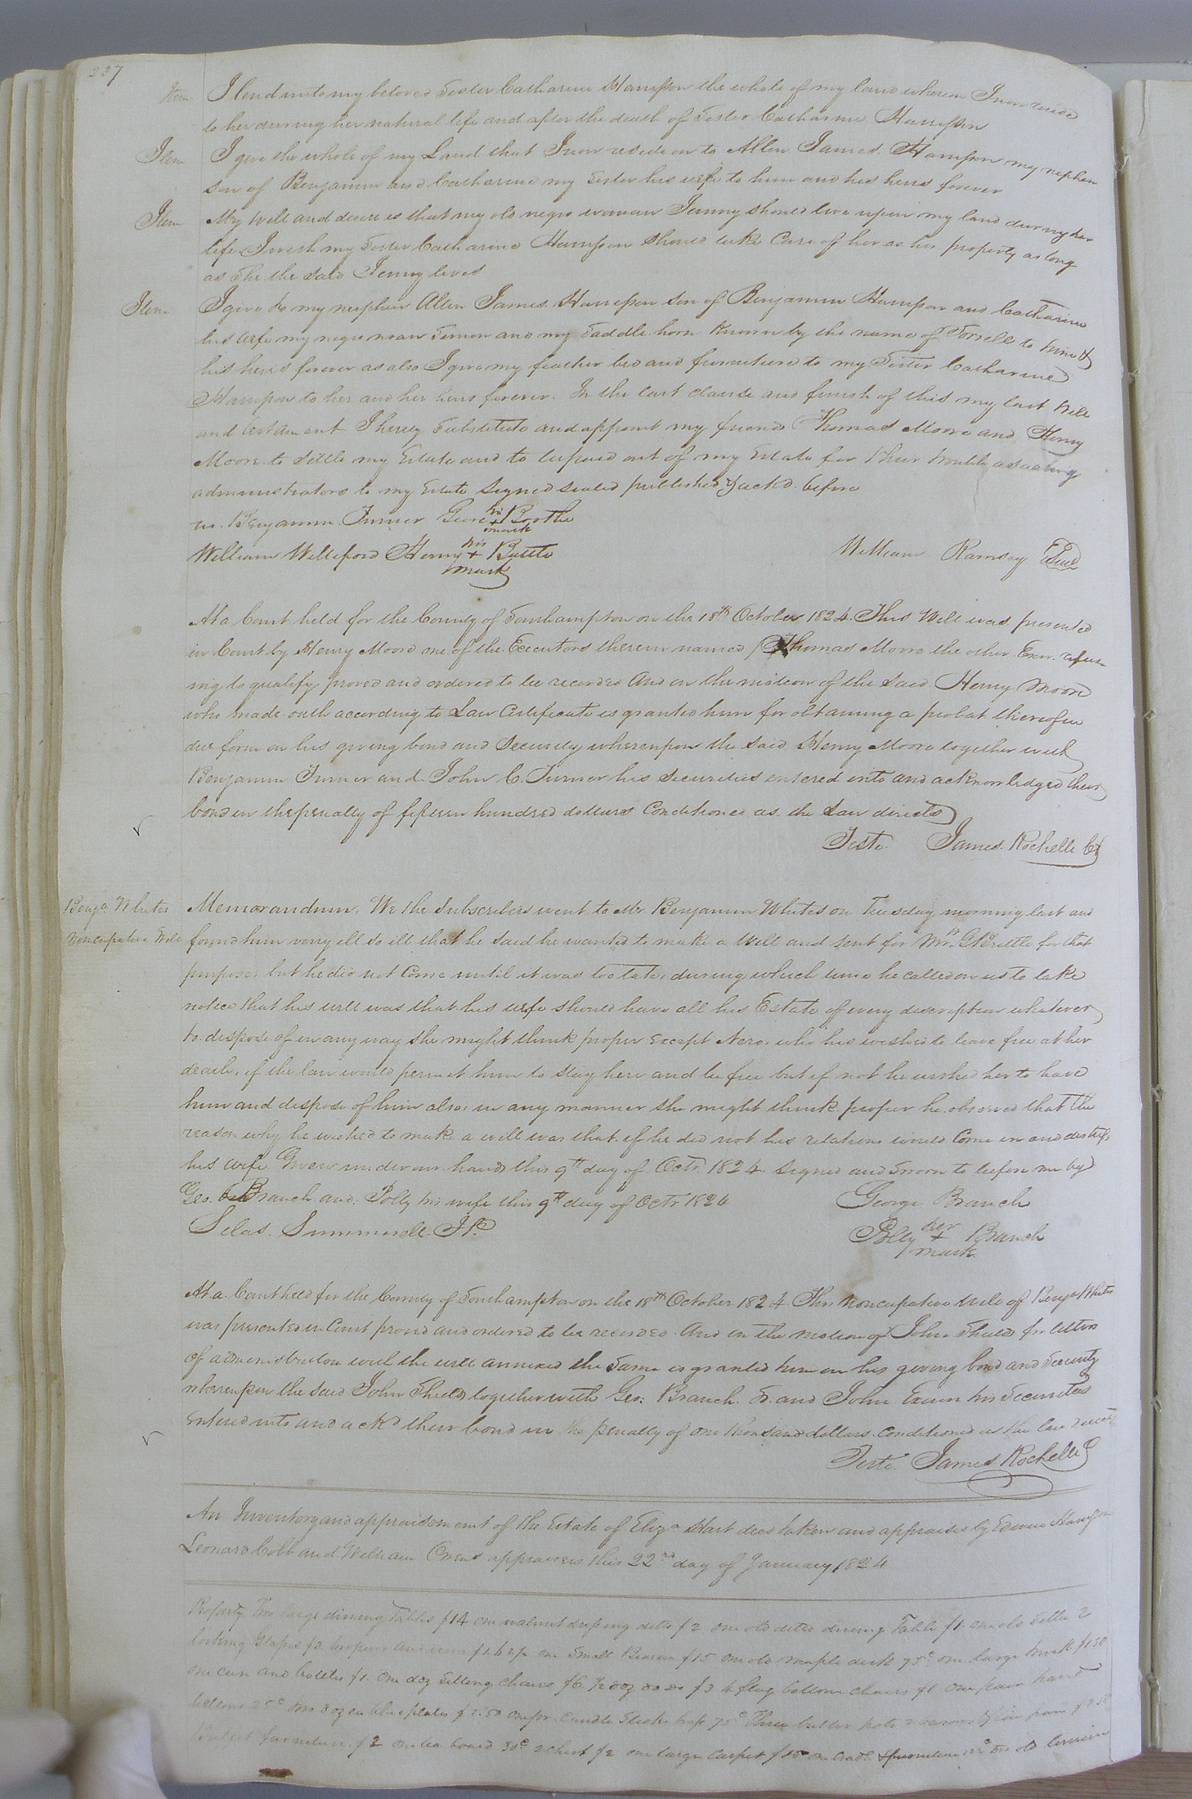 227
Item I lend unto my beloved Sister Catharine Harrison the whole of my land whereon I now reside
to her during her natural life and after the death of Sister Catharine Harrison
Item I give the whole of my Land that I now reside on to Allen James Harrison my nephew
son of Benjamin and Catharine my Sister his wife to him and his heirs forever
Item My will and desire is that my old negro woman Jenny should live upon my land during her
life I wish my Sister Catharine Harrison should take Care of her as her property as long
as She the said Jenny lives
Item I give to my nephew Allen James Harrison son of Benjamin Harrison and Catharine
his wife my negro man Simon and my Saddle horse known by the name of to him &
his heirs forever as also I give my feather bed and furniture to my Sister Catharine
Harrison to her and her heirs forever. In the last clause and finish of this my last Will
and testament I hereby Substitute and appoint my friends Thomas Moore and Henry
Moore to Settle my Estate and to be paid out of my Estate for their trouble as acting
administrators to my Estate Signed sealed published & ackd. before
us. Benjamin Turner George his + mark Boothe
William Williford Henry his + mark Buttle William Ramsey Seal
At a Court held for the County of Southampton on the 18th October 1824. This Will was presented
in Court by Henry Moore one of the Executors therein named (Thomas Moore the other Exor. refus-
ing to qualify) proved and ordered to be recorded And on the motion of the said Henry Moore
who made oath according to Law Certificate is granted him for obtaining a probat thereof in
due form on his giving bond and Security whereupon the said Henry Moore together with
Benjamin Turner and John C. Turner his Securities entered into and acknowledged their
bond in the penalty of fifteen hundred dollars Conditioned as the Law directs
Teste James Rochelle Ck
Benja Whites Memorandum. We the Subscribers went to Mr Benjamin Whites on Tuesday morning last and
Noncupative Will found him very ill so ill that he said he wanted to make a Will and sent for Mr. for that
purpose but he did not Come until it was too late, during which time he called on us to take
notice that his will was that his wife should have all his Estate of every description whatever
to dispose of in any way she might think proper except Nero, who he wished to leave free at her
death, if the law would permit him to stay here and be free but if not he wished her to have
him and dispose of him also in any manner she might think proper he observed that the
reason why he wished to make a will was that if he did not his relations would Come in and
his wife Given under our hands this 9th day of Octr 1824 Signed and Sworn to before me by
Geo. Branch and Polly his wife this 9th day of Octr 1824 George Branch
Silas Summerell J.P. Polly her + mark Branch
At a Court held for the County of Southampton on the 18th October 1824. This noncupative Will of Benja White
was presented in Court proved and ordered to be recorded And on the motion of John Shield for letters
of administration with the will annexed the same is granted him on his giving bond and Security
whereupon the said John Shield together with Geo. Branch and John his Securities
entered into and ackd their bond in the penalty of one thousand dollars conditioned as the law directs
Teste James Rochelle C
An Inventory and appraisement of the Estate of Eliza Hart decd taken and appraised by Edwin Harrison
Leonard Cobb and William Owens appraisers this 22nd day of January 1824
Property Two large dinning Tables $14 one walnut ditto $2 one old ditto dining Table $1 one old ditto 2
looking glasses $3 one Small Beacon $15 one old maple desk 75c one large trunk $1.50
one case and bottles $1. One doz sitting chairs $6 1/2 doz do do $3 4 flag bottom chairs $1 One pair hand
bellows 25c two doz blue plates $2.50 one pr. Candle Sticks 75c Three butter pots
furniture $2 one tea board 30c 2 chest $2 one large Carpet $15 two old